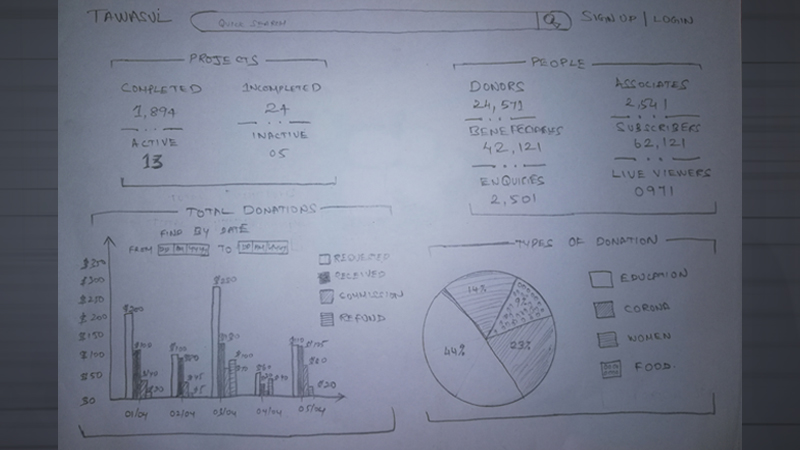 TAWASUL
QUICK SEARCH
SIGN UP | LOGIN
PROJECTS
COMPLETED
1,894
INCOMPLETED
24
ACTIVE
13
INACTIVE
05
PEOPLE
DONORS
24,571
ASSOCIATES
2,541
42,121
SUBSCRIBERS
62,121
ENQUIRIES
2,501
LIVE VIEWERS
0971
TOTAL DONATIONS
FIND BY DATE
FROM DD MM YYYY TO DD MM YYYY
REQUESTED
RECEIVED
COMMISSION
REFUND
$300
$250
$200
$150
$100
$50
$0
$200
$100
01/04
02/04
03/04
04/04
05/04
$105
$20
TYPES OF DONATION
14%
9%
23%
44%
EDUCATION
CORONA
WOMEN
FOOD